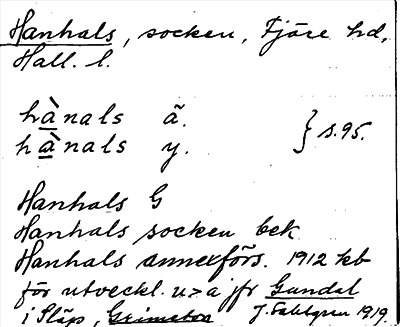 Hanhals, socken, Fjäre hd,
Hall. l.
hànals ä.
hànals y. } s.95.
Hanhals G
Hanhals socken bek
Hanhals annexförs. 1912 kb
för utveckl. u>a jfr Gundal
i Släp, Grimeton J. Sahlgren 1919.